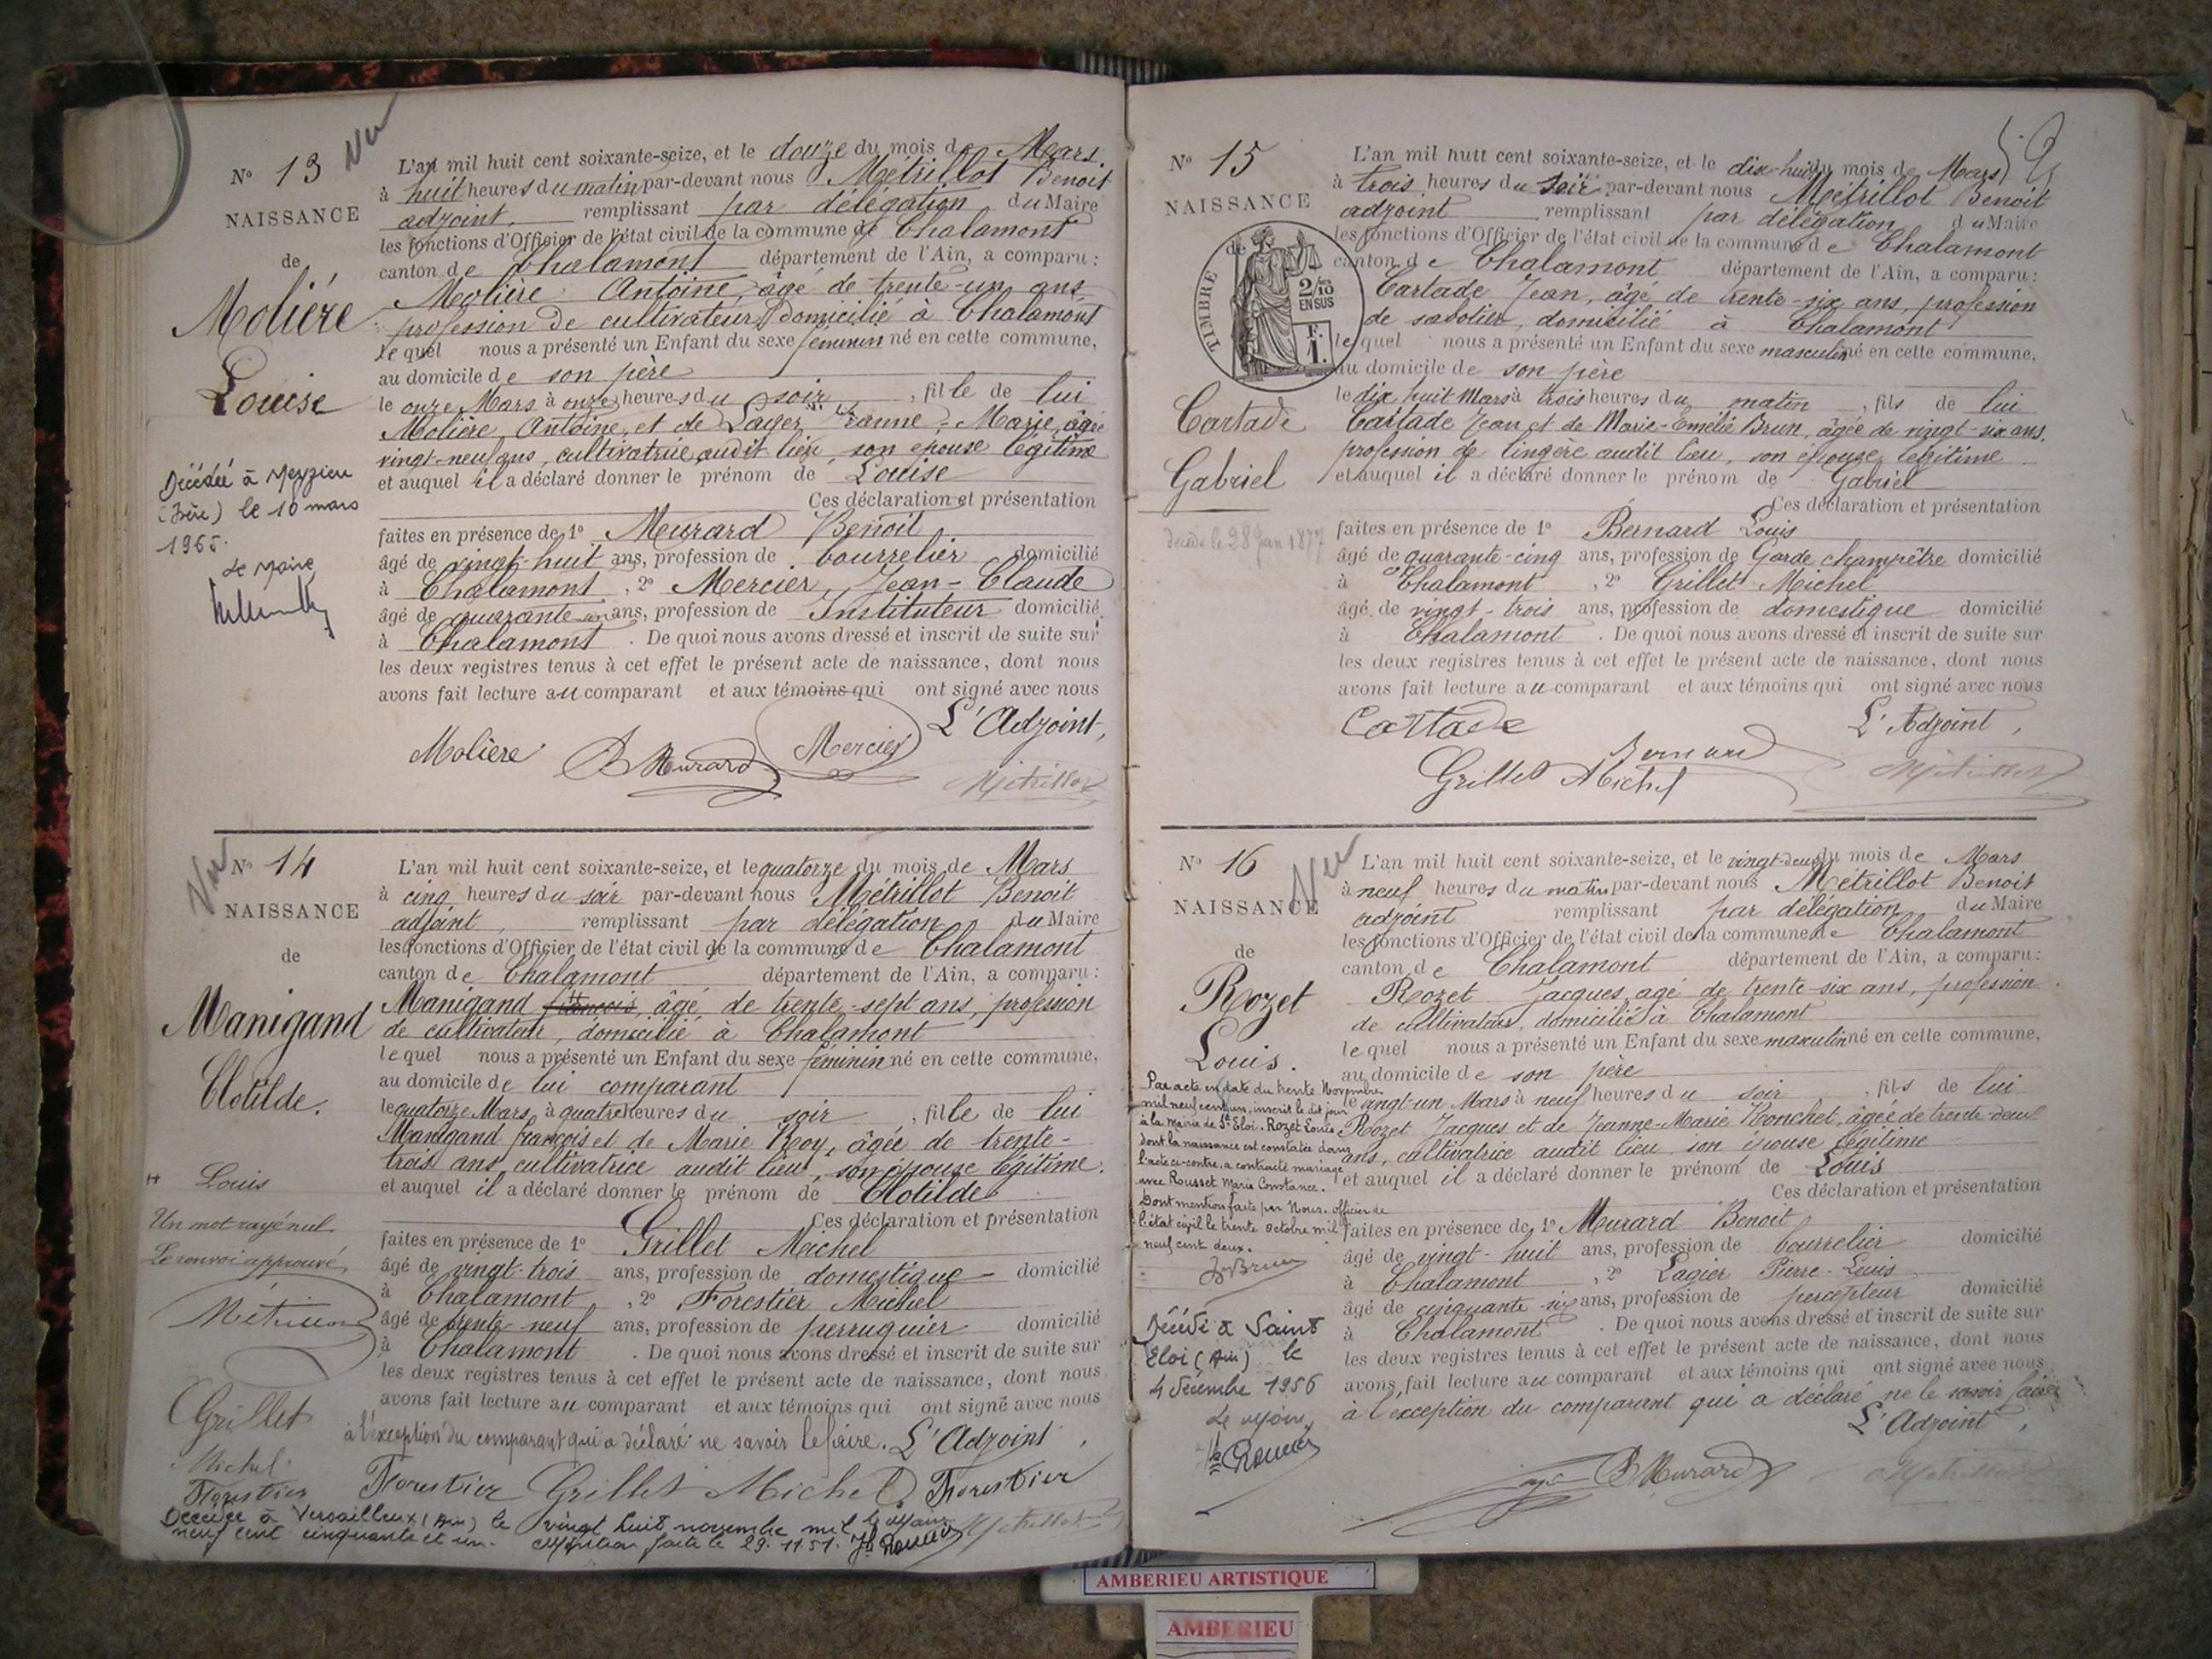 N° 13
NAISSANCE
de
Molière
Louise
Décédée à Meyzieu
(Isère) le 10 mars
1965.
Le Maire
L'an mil huit cent soixante-seize, et le douze du mois de Mars.
à huit heures du matin par-devant nous Métrillot Benoit
adjoint, remplissant par délégation du Maire
les fonctions d'Officier de l'état civil de la commune de Chalamont
canton de Chalamont département de l'Ain, a comparu :
Molière Antoine, âgé de trente-un ans
profession de cultivateur, domicilié à Chalamont
lequel nous a présenté un Enfant du sexe féminin né en cette commune,
au domicile de son père
le onze Mars à onze heures du soir, fille de lui
Molière Antoine, et de Marie, âgée
vingt-neuf ans, cultivatrice, audit lieu, son épouse légitime
et auquel il a déclaré donner le prénom de Louise
Ces déclaration et présentation
faites en présence de 1° Meurard Benoit
âgé de vingt-huit ans, profession de bourrelier domicilié
à Chalamont, 2° Mercier, Jean-Claude
âgé de quarante ans, profession de Instituteur domicilié
à Chalamont. De quoi nous avons dressé et inscrit de suite sur
les deux registres tenus à cet effet le présent acte de naissance, dont nous
avons fait lecture au comparant et aux témoins qui ont signé avec nous
L'Adjoint,
Molière B Murard Mercier
Métrillot
N° 14
NAISSANCE
de
Manigand
Clotilde.
Louis
Un mot rayé nul
Le renvoi approuvé,
Métrillot
Grillet
Michel
Forestier
L'an mil huit cent soixante-seize, et le quatorze du mois de Mars
à cinq heures du soir par-devant nous Métrillot Benoit
adjoint, remplissant par délégation du Maire
les fonctions d'Officier de l'état civil de la commune de Chalamont
canton de Chalamont département de l'Ain, a comparu :
Manigand françois, âgé de trente-sept ans, profession
de cultivateur, domicilié à Chalamont
lequel nous a présenté un Enfant du sexe féminin né en cette commune,
au domicile de lui comparant
le quatorze Mars, à quatre heures du soir, fille de lui
Manigand françois et de Marie Roy, âgée de trente-
trois ans, cultivatrice audit lieu, son épouse légitime.
et auquel il a déclaré donner le prénom de Clotilde
Ces déclaration et présentation
faites en présence de 1° Grillet Michel
âgé de vingt-trois ans, profession de domestique domicilié
à Chalamont, 2° Forestier Michel
âgé de trente-neuf ans, profession de perruquier domicilié
à Chalamont. De quoi nous avons dressé et inscrit de suite sur
les deux registres tenus à cet effet le présent acte de naissance, dont nous
avons fait lecture au comparant et aux témoins qui ont signé avec nous
à l'exception du comparant qui a déclaré ne savoir le faire. L'Adjoint,
Forestier Grillet Michel Forestier
Métrillot
Décédée à Versailleux (Ain) le vingt huit novembre mil
neuf cent cinquante et un. Mention faite le 29.11.51. le Maire
N° 15
NAISSANCE
de
TIMBRE
2/10
EN SUS
F.
1.
Cartade
Gabriel
décédé le 28 Juin 1877
L'an mil huit cent soixante-seize, et le dix-huit du mois de Mars
à trois heures du soir par-devant nous Métrillot Benoit
adjoint remplissant par délégation du Maire
les fonctions d'Officier de l'état civil de la commune de Chalamont
canton de Chalamont département de l'Ain, a comparu :
Cartade Jean, âgé de trente-six ans, profession
de sabotier, domicilié à Chalamont
lequel nous a présenté un Enfant du sexe masculin né en cette commune,
au domicile de son père
le dix huit Mars à trois heures du matin, fils de lui
Cartade Jean et de Marie-Emélie Brun, âgée de vingt-six ans,
profession de lingère audit lieu, son épouse légitime
et auquel il a déclaré donner le prénom de Gabriel
Ces déclaration et présentation
faites en présence de 1° Bernard Louis
âgé de quarante-cinq ans, profession de Garde champêtre domicilié
à Chalamont, 2° Grillet Michel
âgé de vingt-trois ans, profession de domestique domicilié
à Chalamont. De quoi nous avons dressé et inscrit de suite sur
les deux registres tenus à cet effet le présent acte de naissance, dont nous
avons fait lecture au comparant et aux témoins qui ont signé avec nous
Cartade L'Adjoint,
Bernard
Grillet Michel Métrillot
N° 16
NAISSANCE
de
Rozet
Louis.
Par acte en date du trente Novembre
mil neuf cent un, inscrit le dit jour
à la Mairie de St Eloi, Rozet Louis,
dont la naissance est constatée dans
l'acte ci-contre, a contracté mariage
avec Rousset Marie Constance.
Dont mention faite par Nous, officier de
l'état civil le trente octobre mil
neuf cent deux.
Décédé à Saint
Eloi (Ain) le
4 décembre 1956
Le Maire,
L'an mil huit cent soixante-seize, et le vingt-deux du mois de Mars
à neuf heures du matin par-devant nous Métrillot Benoit
adjoint remplissant par délégation du Maire
les fonctions d'Officier de l'état civil de la commune de Chalamont
canton de Chalamont département de l'Ain, a comparu :
Rozet Jacques, âgé de trente-six ans, profession
de cultivateur, domicilié à Chalamont
lequel nous a présenté un Enfant du sexe masculin né en cette commune,
au domicile de son père
le vingt-un Mars à neuf heures du soir, fils de lui
Rozet Jacques et de Jeanne-Marie Ronchet, âgée de trente-deux
ans, cultivatrice audit lieu, son épouse légitime
et auquel il a déclaré donner le prénom de Louis
Ces déclaration et présentation
faites en présence de 1° Murard Benoit
âgé de vingt-huit ans, profession de bourrelier domicilié
à Chalamont, 2° Lagier Pierre-Louis
âgé de cinquante-six ans, profession de percepteur domicilié
à Chalamont. De quoi nous avons dressé et inscrit de suite sur
les deux registres tenus à cet effet le présent acte de naissance, dont nous
avons fait lecture au comparant et aux témoins qui ont signé avec nous
à l'exception du comparant qui a déclaré ne le savoir faire
L'Adjoint,
B Murard Métrillot
AMBERIEU ARTISTIQUE
AMBERIEU